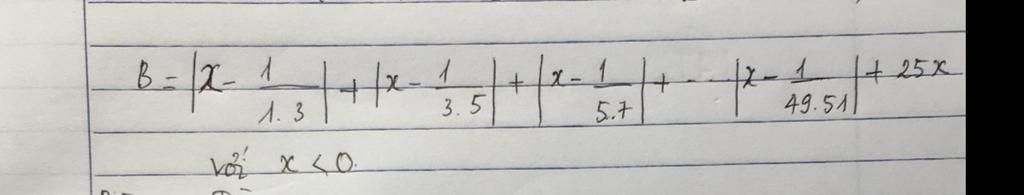 B = |x - 1/1.3| + |x - 1/3.5| + |x - 1/5.7| + ... |x - 1/49.51| + 25x
với x < 0